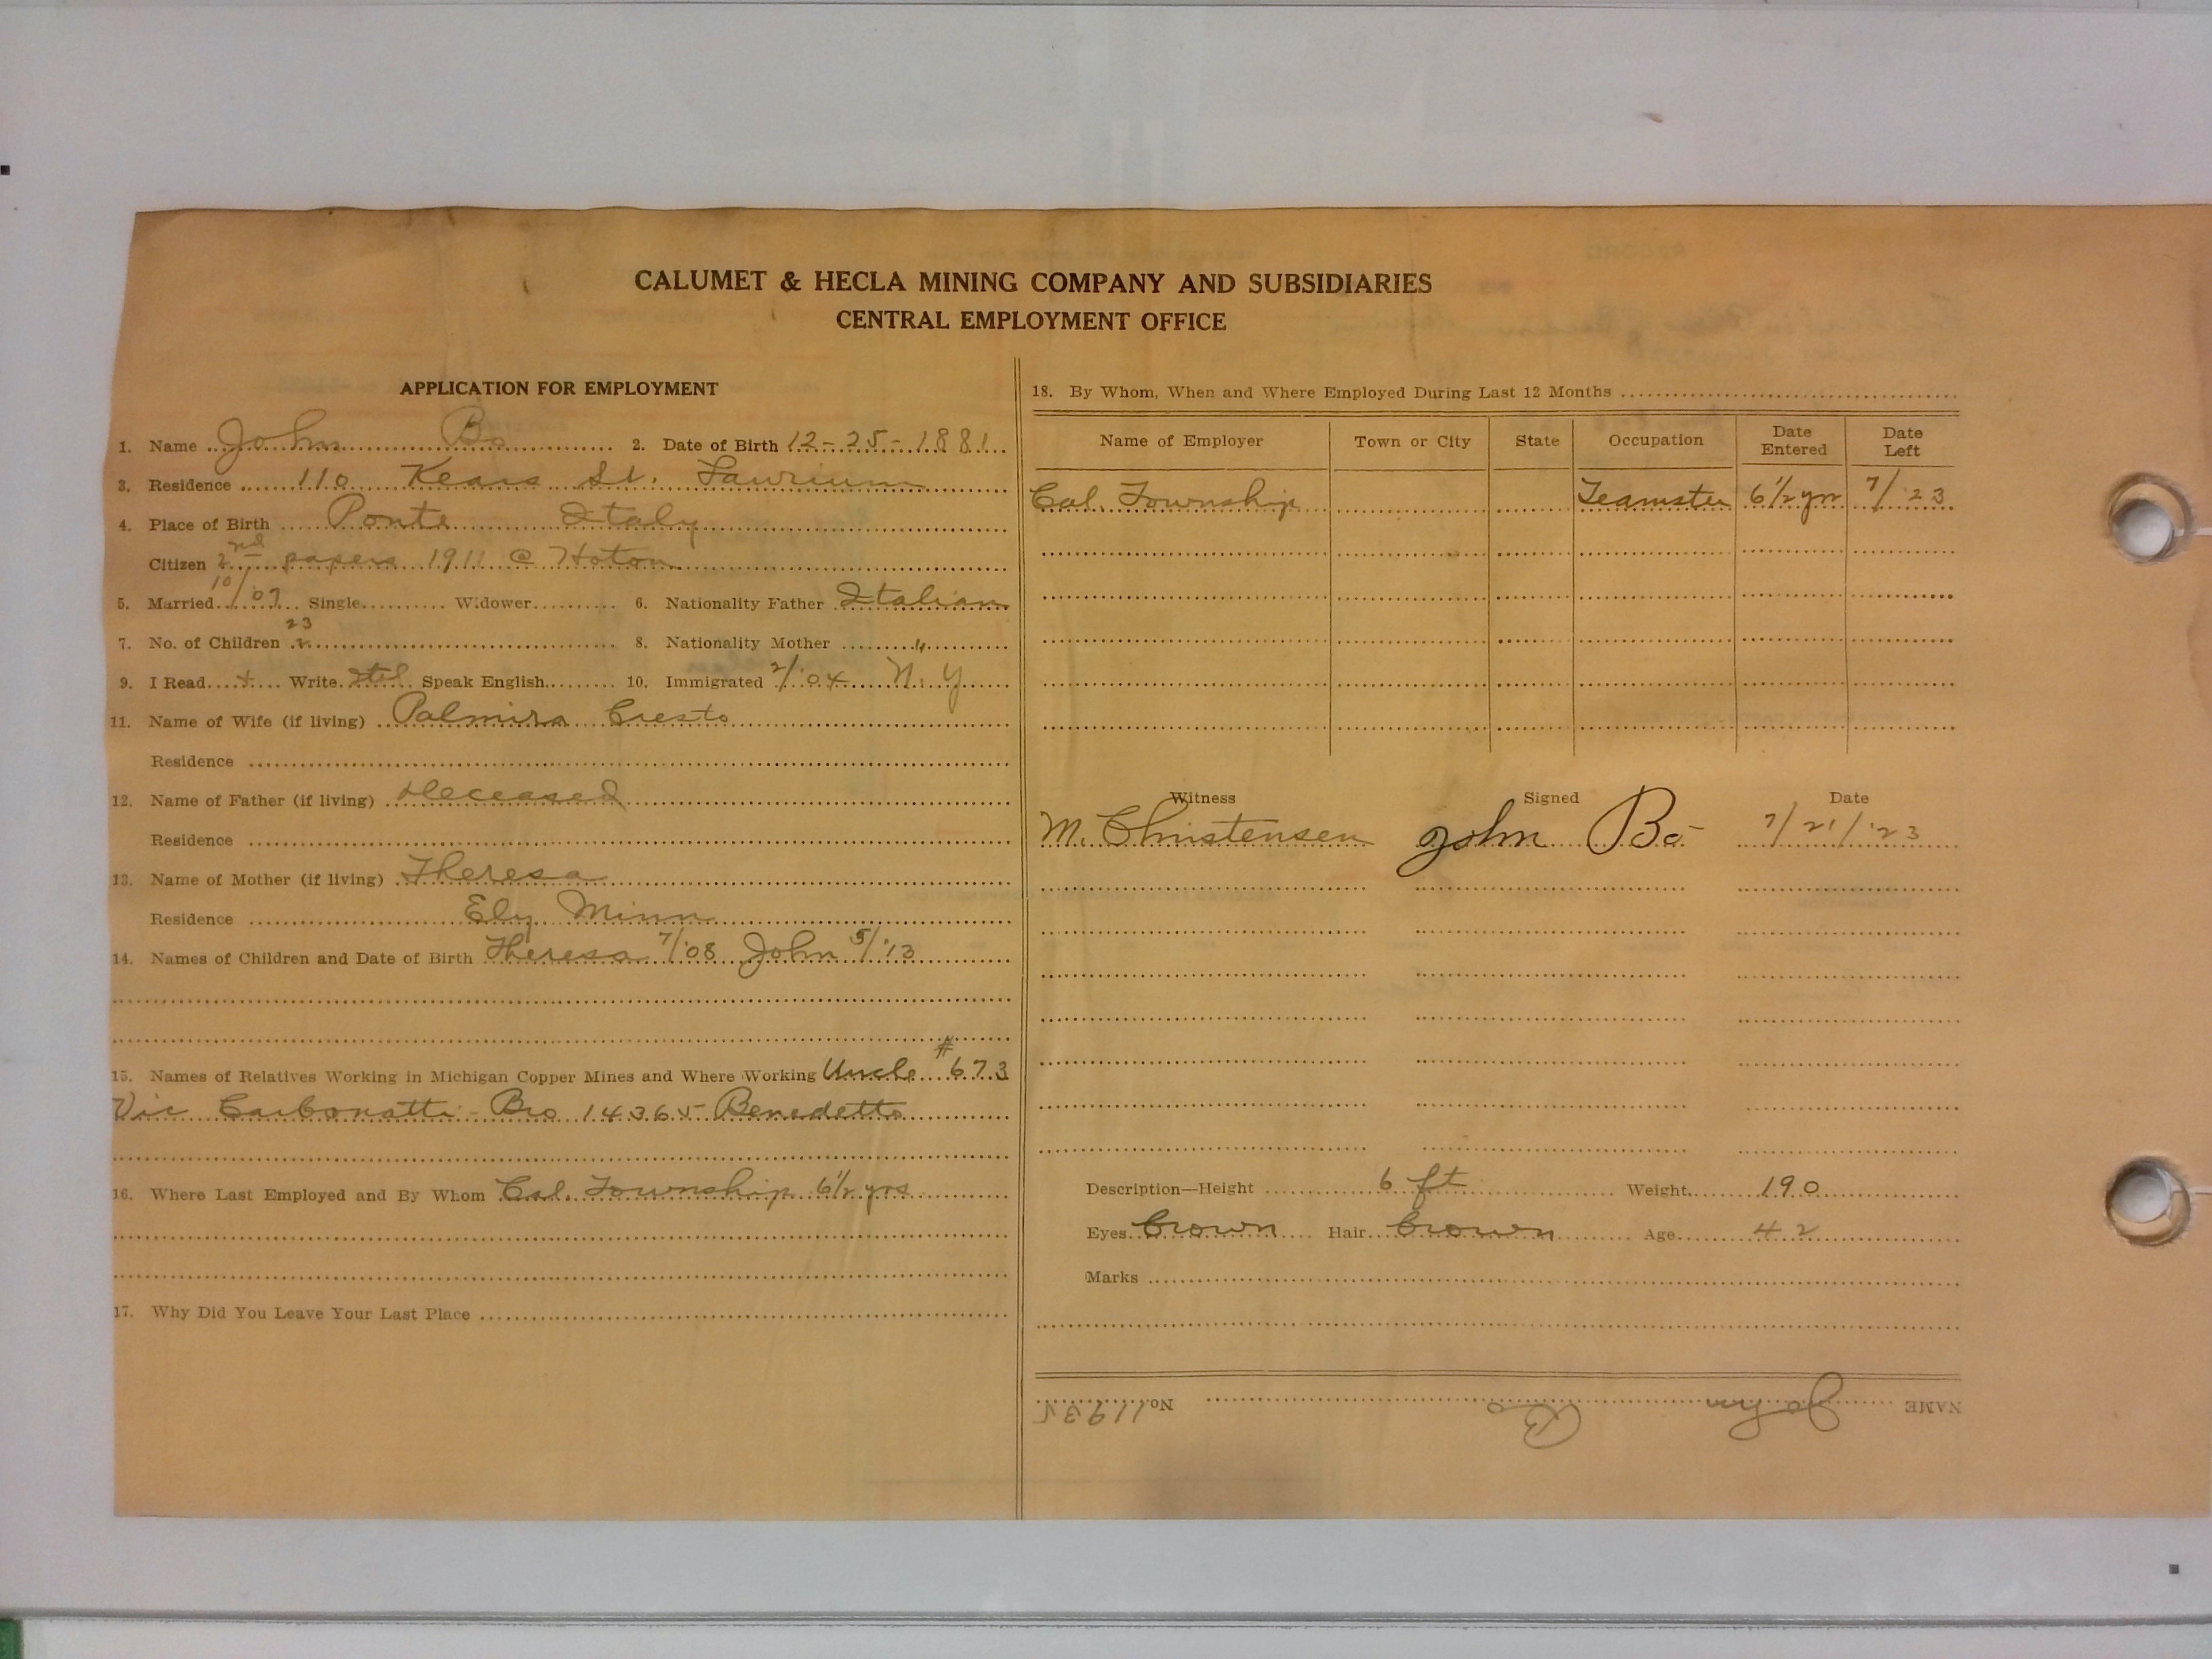 CALUMET & HECLA MINING COMPANY AND SUBSIDIARIES
CENTRAL EMPLOYMENT OFFICE
APPLICATION FOR EMPLOYMENT
1. Name John Bo 2. Date of Birth 12-25-1881
3. Residence 110 Kears St. Laurium
4. Place of Birth Ponte Italy
Citizen 2nd papers 1911 @ Hoton
5. Married 10/07 Single Widower 6. Nationality Father Italian
23
7. No. of Children 2 8. Nationality Mother "
9. I Read + Write Itel Speak English 10. Immigrated 2/'04 N.Y
11. Name of Wife (if living) Palmira Cresto
Residence
12. Name of Father (if living) Deceased
Residence
13. Name of Mother (if living) Theresa
Residence Ely Minn
14. Names of Children and Date of Birth Theresa 7/'08 John 5/'13
15. Names of Relatives Working in Michigan Copper Mines and Where Working Uncle #673
Vic Carbonatti - Bro 14365 Benedetto
16. Where Last Employed and By Whom Cal. Township 6½ yrs
17. Why Did You Leave Your Last Place
18. By Whom, When and Where Employed During Last 12 Months
Name of Employer Town or City State Occupation Date Entered Date Left
Cal. Township Teamster 6½ yrs 7/23
Witness Signed Date
M. Christensen John Bo 7/21/'23
Description—Height 6 ft Weight 190
Eyes brown Hair brown Age 42
Marks
NAME John Bo No. 11935